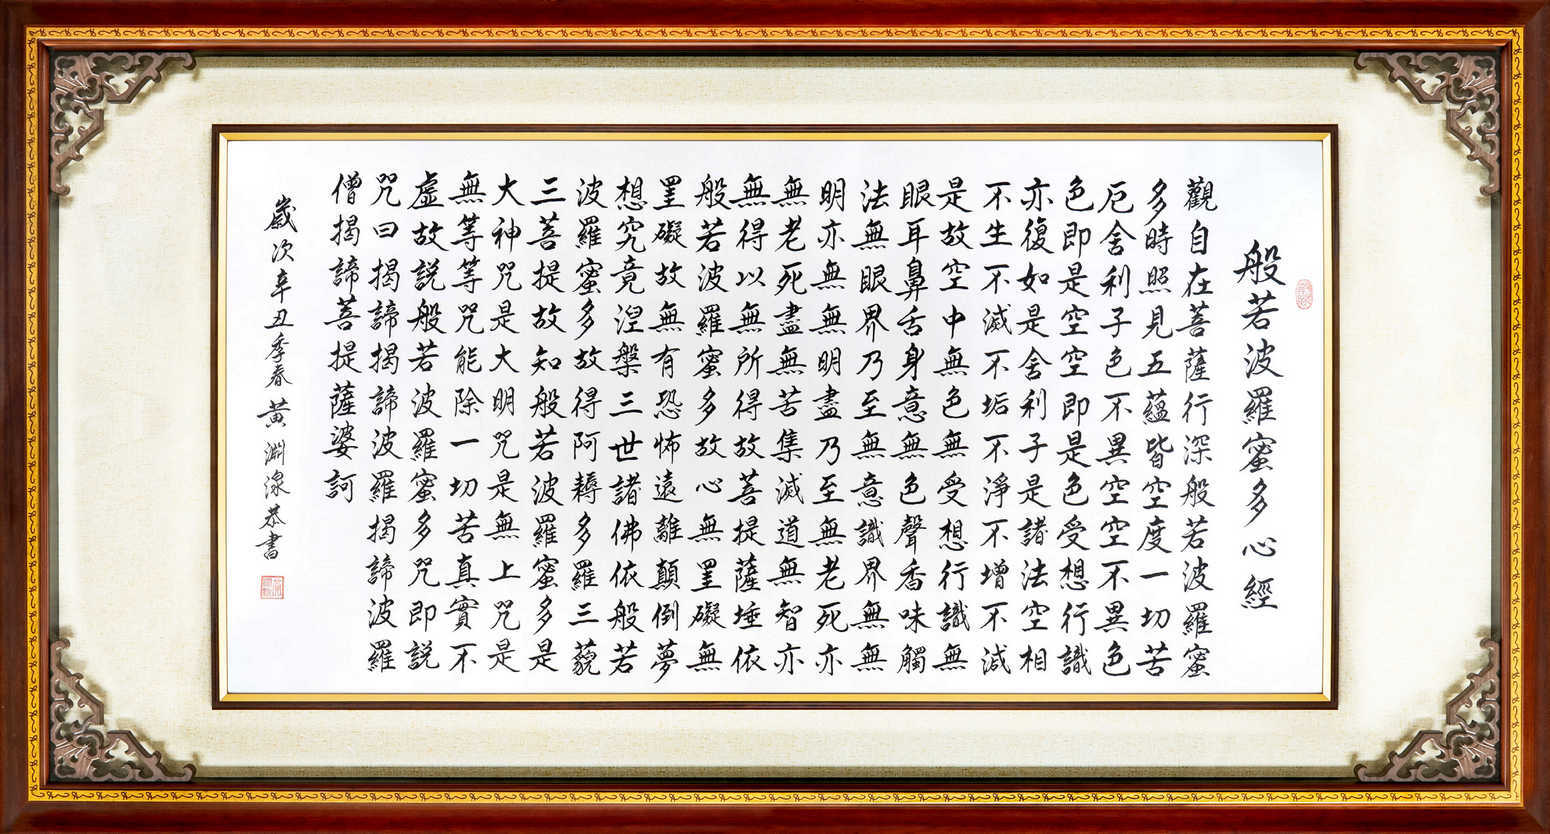 般若波羅蜜多心經
觀自在菩薩行深般若波羅蜜
多時照見五蘊皆空度一切苦
厄舍利子色不異空空不異色
色即是空空即是色受想行識
亦復如是舍利子是諸法空相
不生不滅不垢不淨不增不減
是故空中無色無受想行識無
眼耳鼻舌身意無色聲香味觸
法無眼界乃至無意識界無無
明亦無無明盡乃至無老死亦
無老死盡無苦集滅道無智亦
無得以無所得故菩提薩埵依
般若波羅蜜多故心無罣礙無
罣礙故無有恐怖遠離顛倒夢
想究竟涅槃三世諸佛依般若
波羅蜜多故得阿耨多羅三藐
三菩提故知般若波羅蜜多是
大神咒是大明咒是無上咒是
無等等咒能除一切苦真實不
虛故說般若波羅蜜多咒即說
咒曰揭諦揭諦波羅揭諦波羅
僧揭諦菩提薩婆訶
歲次辛丑季春黃淵湶恭書